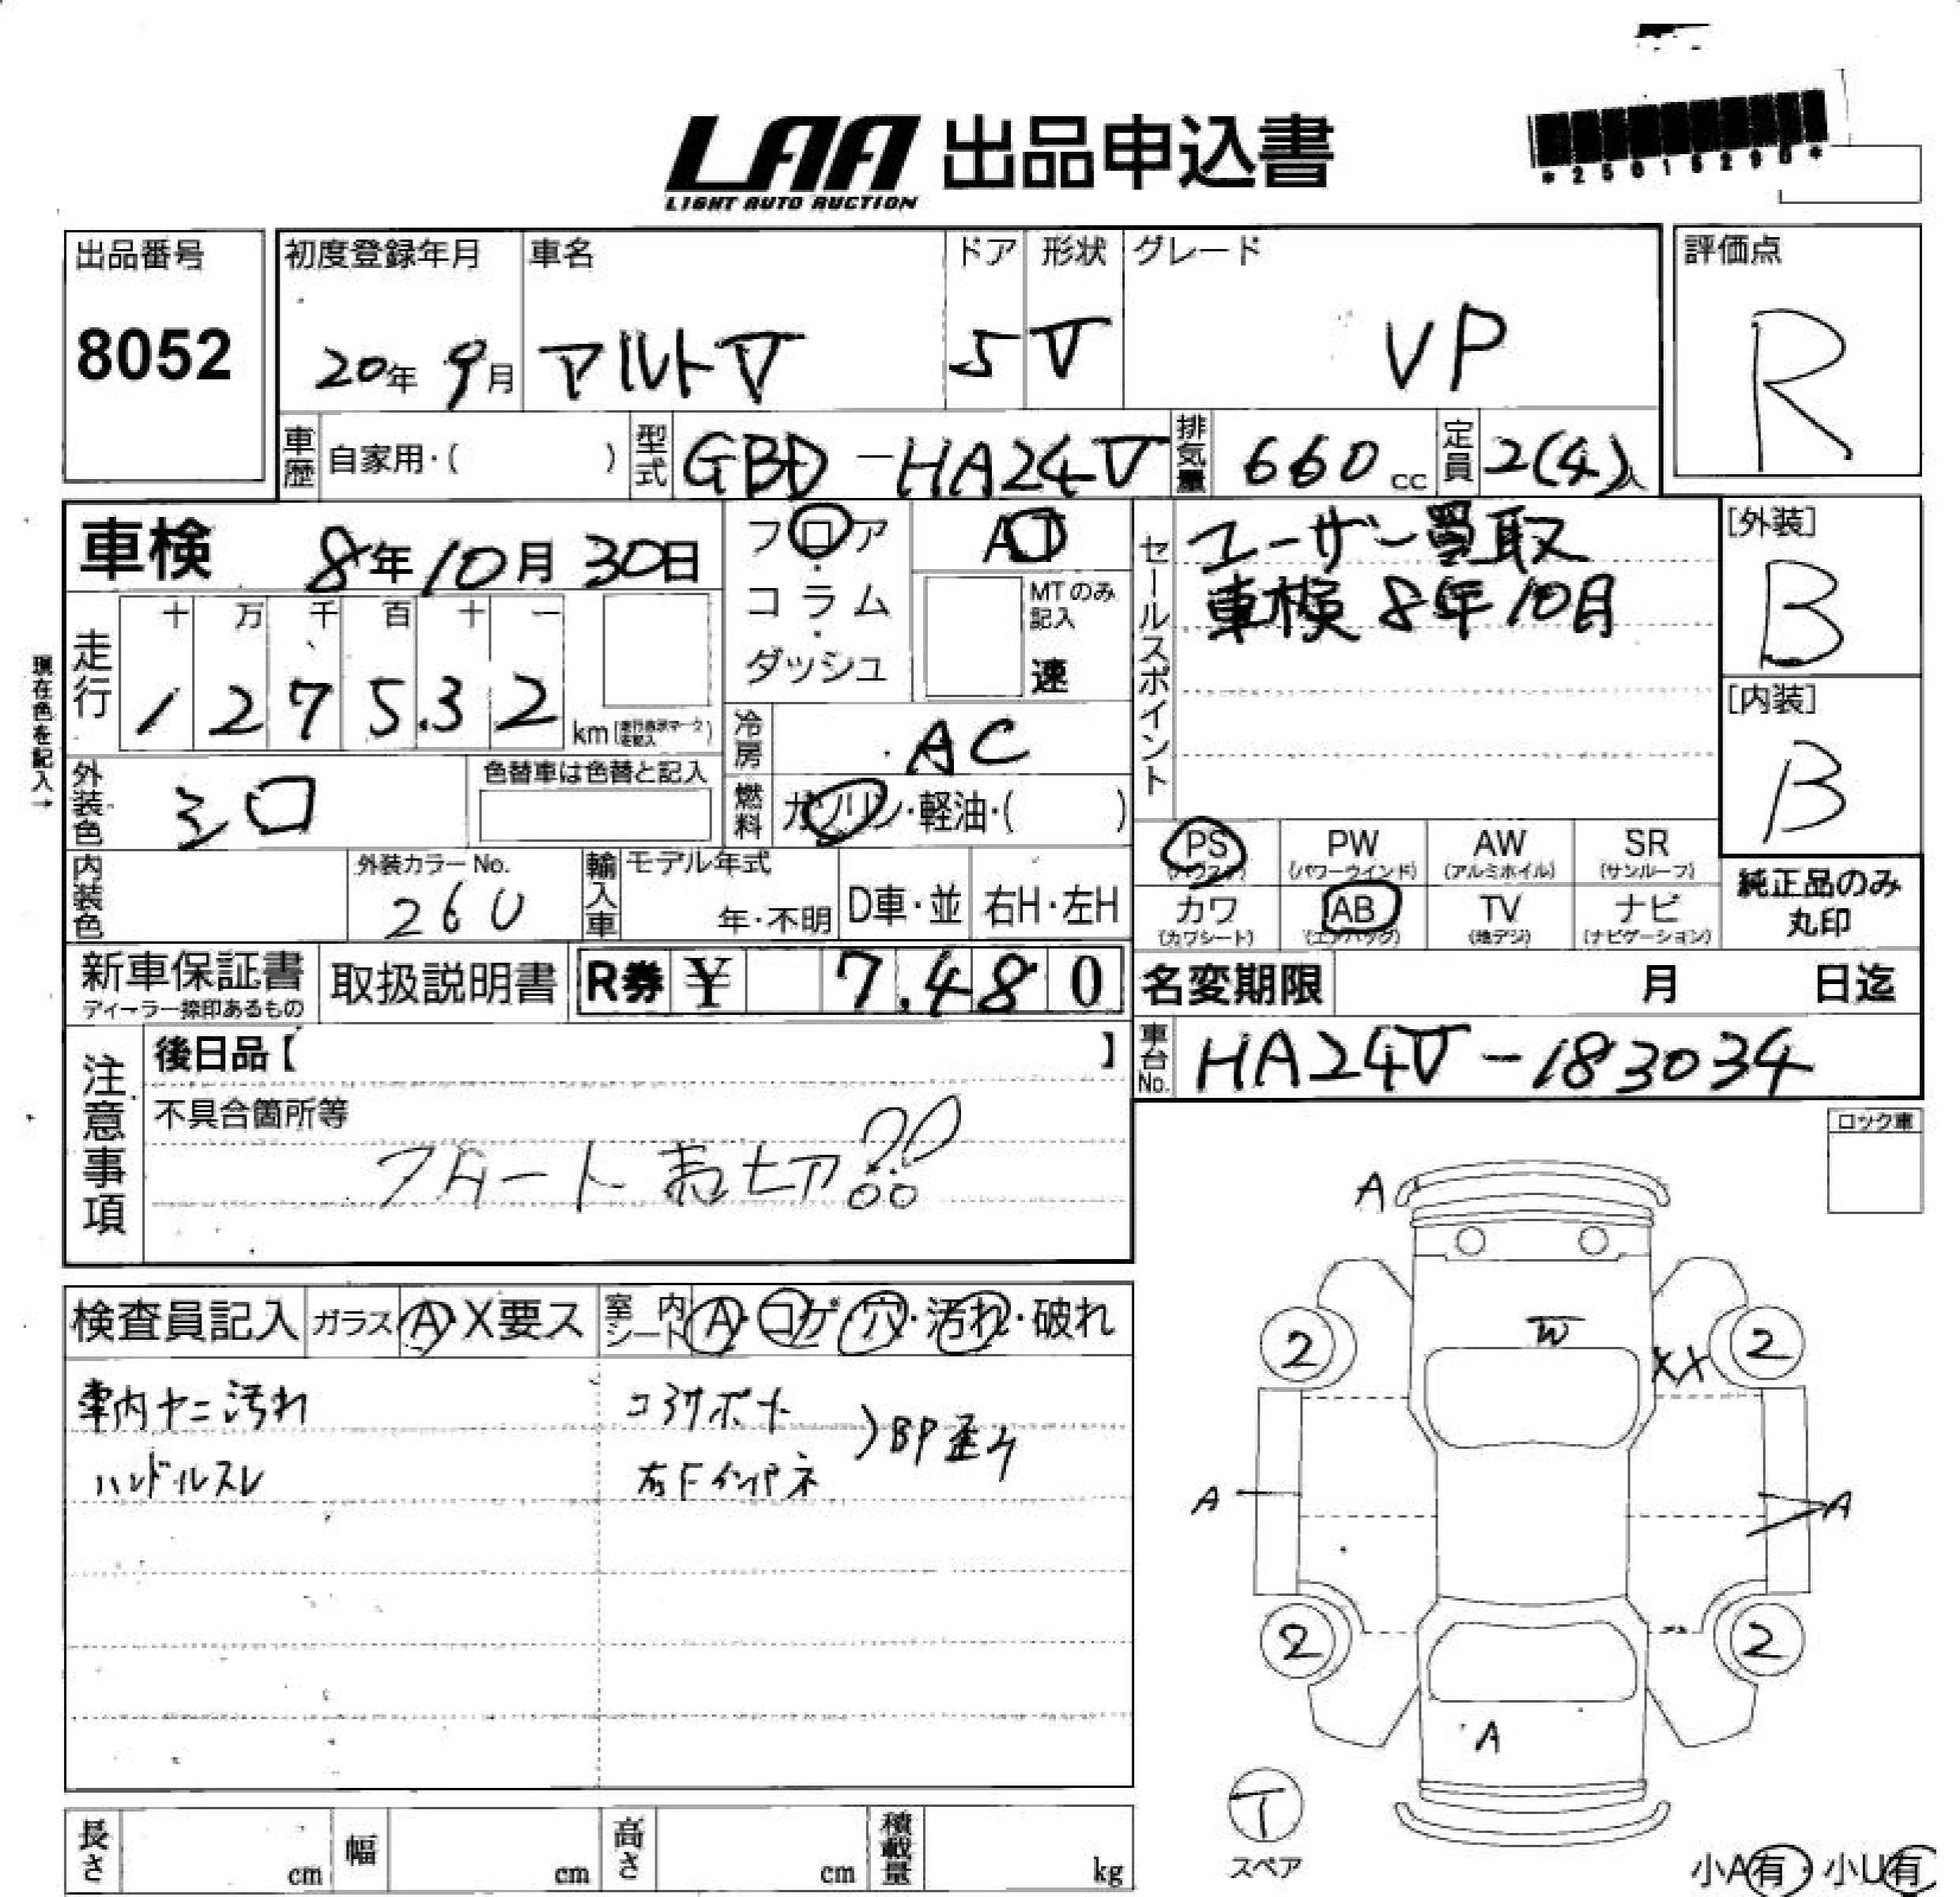 LAA 出品申込書
LIGHT AUTO AUCTION
出品番号
8052
初度登録年月 車名 ドア 形状 グレード
20年 9月 アルトV 5 V VP
評価点
R
車歴 自家用・( ) 型式 GBD-HA24V 排気量 660 cc 定員 2(4)人
車検 8年10月30日
フロア
コラム
ダッシュ
AT
MTのみ記入
速
セールスポイント
ユーザー買取
車検 8年10月
[外装]
B
[内装]
B
現在色を記入→
走行 十 万 千 百 十 一
1 2 7 5.3 2
km
冷房 AC
外装色 シロ 色替車は色替と記入
燃料 ガソリン・軽油・( )
PS PW AW SR
(パワーウインド) (アルミホイル) (サンルーフ)
カワ AB TV ナビ
(カワシート) (エアバッグ) (地デジ) (ナビゲーション)
純正品のみ
丸印
内装色 外装カラーNo.
26U
輸入車 モデル年式
年・不明 D車・並 右H・左H
新車保証書
ディーラー捺印あるもの
取扱説明書 R券 ¥ 7,480
名変期限 月 日迄
車台No. HA24V-183034
注意事項
後日品【 】
不具合箇所等
スタート売切ア
ロック車
検査員記入 ガラス A・X要ス 室内シート A・コゲ・穴・汚れ・破れ
車内ヤニ汚れ
ハンドルスレ
コアサポート
右Fインパネ
BP歪み
A
W
XX
2 2
A A
2 2
A
T
スペア
小A有・小U有
長さ cm 幅 cm 高さ cm 積載量 kg